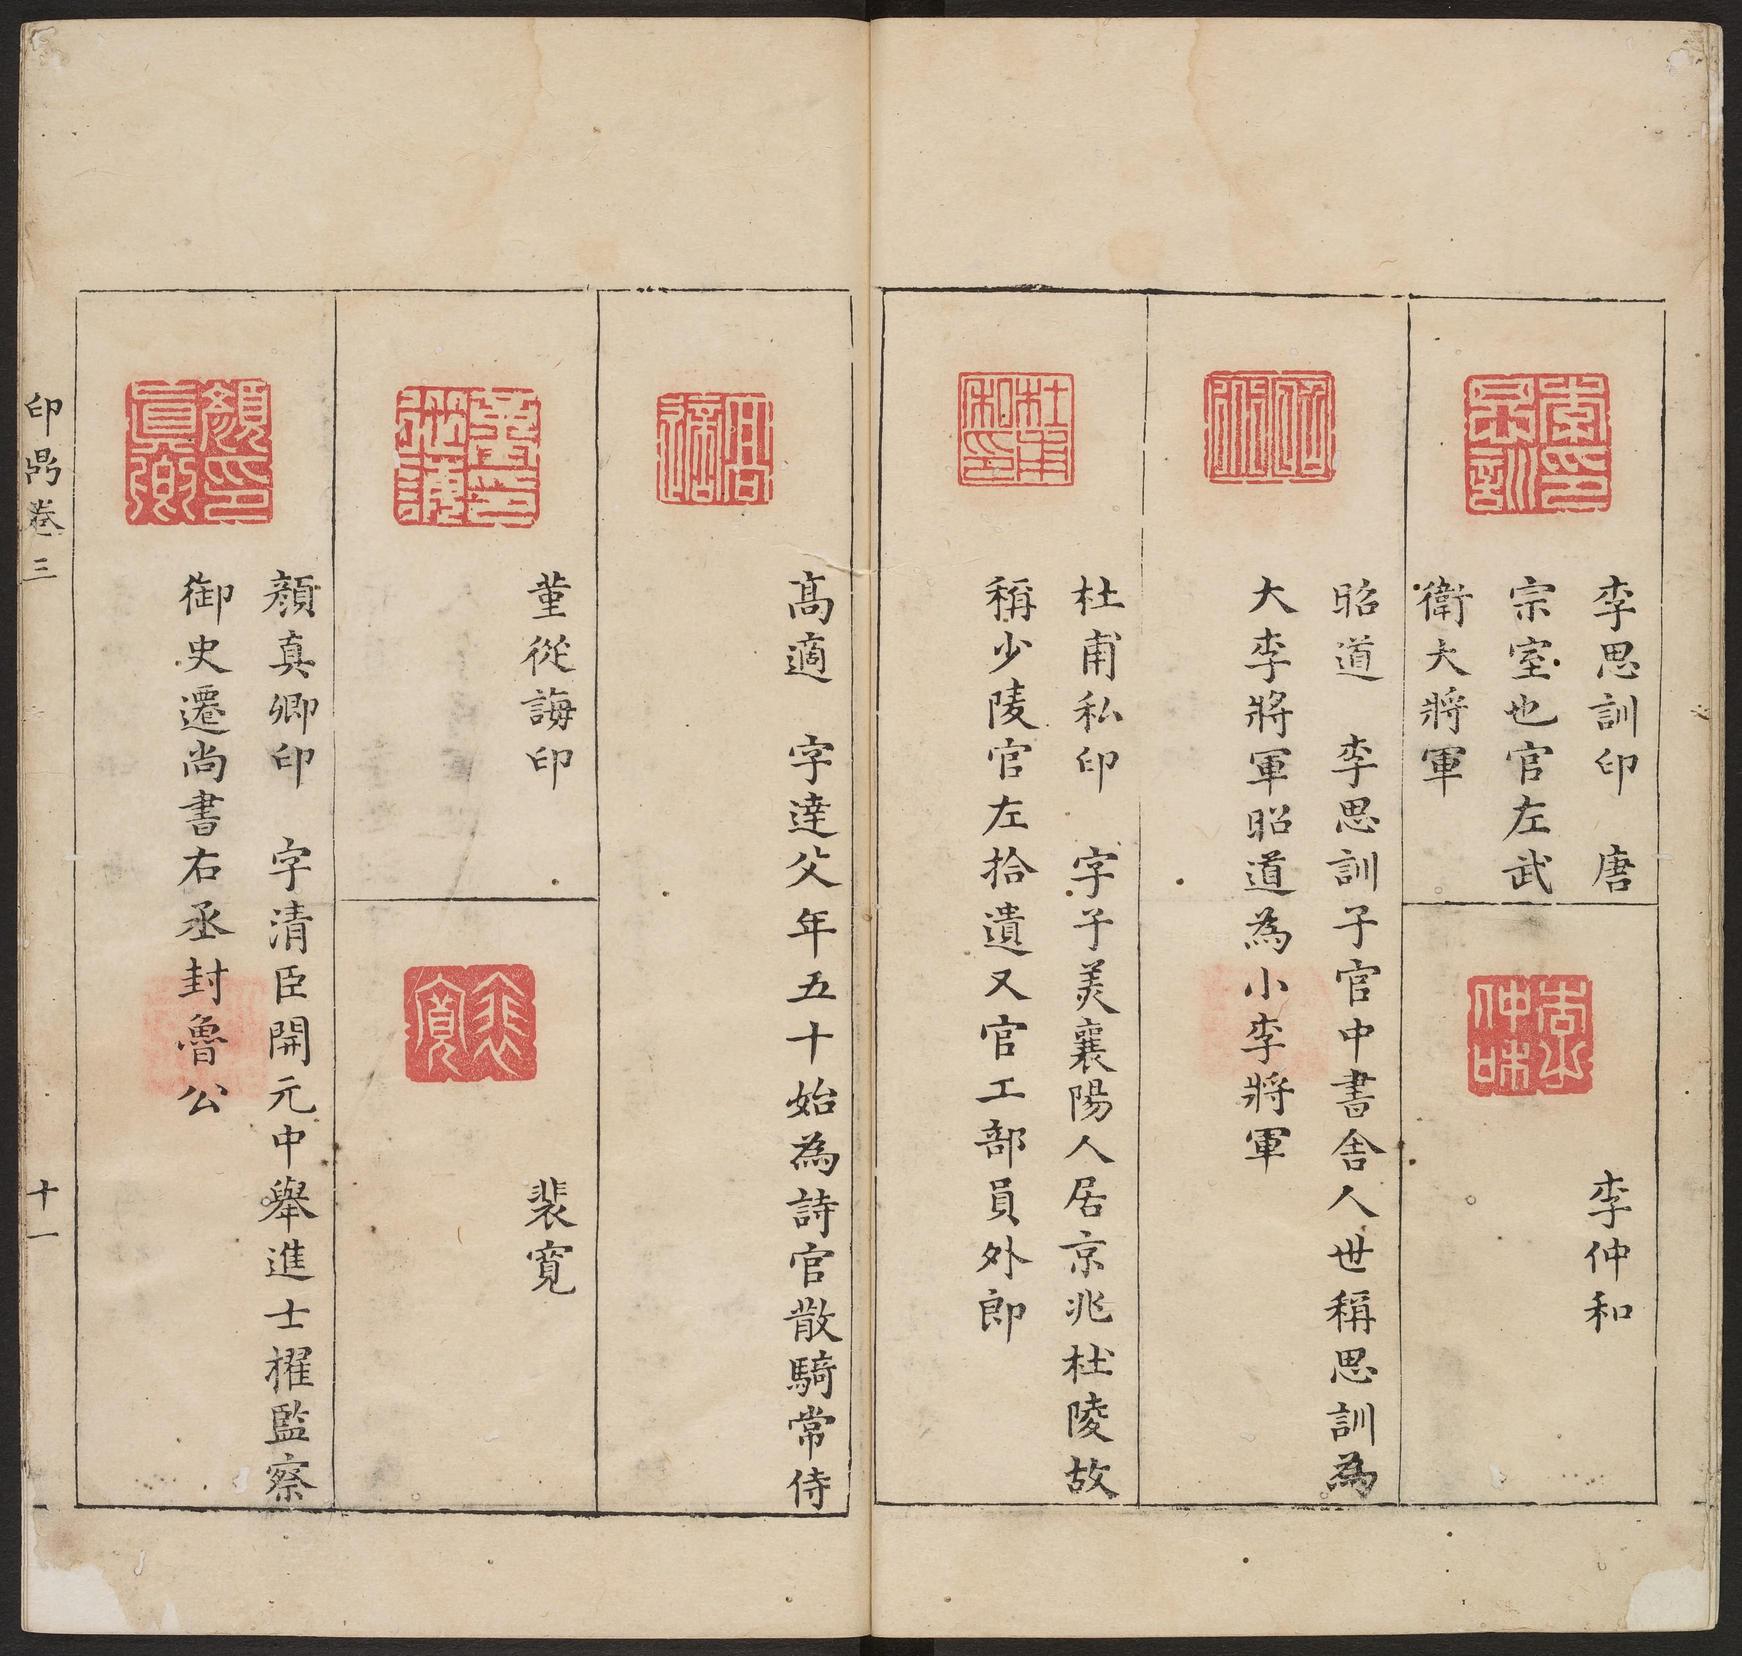 李思訓印　唐
宗室也官左武
衛大將軍
李仲和
昭道　李思訓子官中書舍人世稱思訓為
大李將軍昭道為小李將軍
杜甫私印　字子美襄陽人居京兆杜陵故
稱少陵官左拾遺又官工部員外郎
高適　字達父年五十始為詩官散騎常侍
董從誨印
裴寬
顏真卿印　字清臣開元中舉進士櫂監察
御史遷尚書右丞封魯公
印鼎卷三
十一